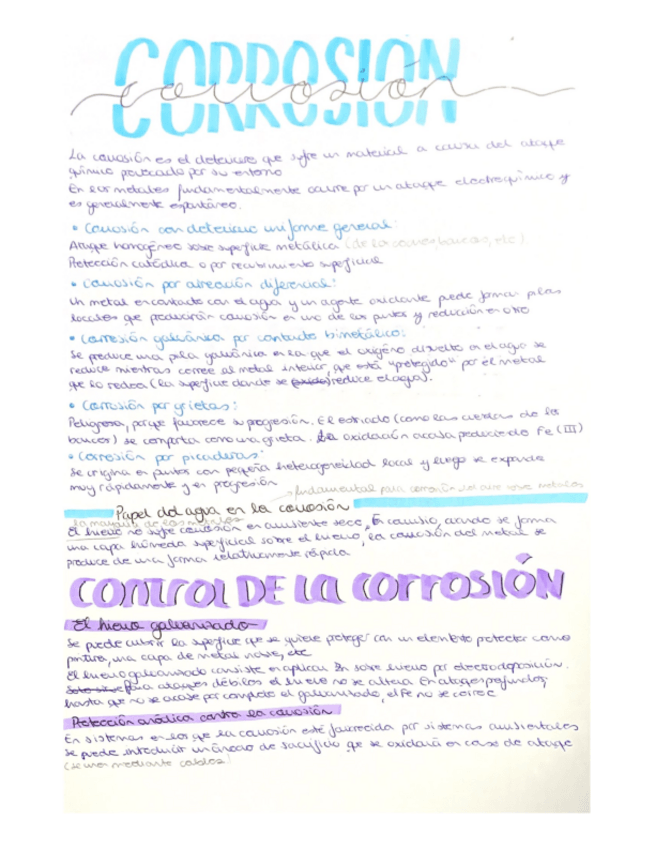 CORROSION
corrosión
La corrosión es el deterioro que sufre un material a causa del ataque
químico provocado por su entorno
En los metales fundamentalmente ocurre por un ataque electroquímico y
es generalmente espontáneo.
• Corrosión con deterioro uniforme general:
Ataque homogéneo sobre superficie metálica (de los coches, barcos, etc)
Protección catódica o por recubrimiento superficial
• Corrosión por aireación diferencial:
Un metal en contacto con el agua y un agente oxidante puede formar pilas
locales que producirán corrosión en uno de los puntos y reducción en otro
• Corrosión galvánica por contacto bimetálico:
Se produce una pila galvánica en la que el oxígeno disuelto en el agua se
reduce mientras corroe al metal interior, que está "protegido" por el metal
que lo rodea (la superficie donde se reduce el agua).
• Corrosión por grietas:
Peligrosa, porque favorece su progresión. El estriado (como las cuerdas de los
barcos) se comporta como una grieta. La oxidación acaba produciendo Fe (III)
• Corrosión por picaduras:
Se origina en puntos con pequeña heterogeneidad local y luego se expande
muy rápidamente y en progresión
fundamental para corrosión del aire sobre metales
Papel del agua en la corrosión
la mayoría de los metales
El hierro no sufre corrosión en ambiente seco. En cambio, cuando se forma
una capa húmeda superficial sobre el hierro, la corrosión del metal se
produce de una forma relativamente rápida
CONTROL DE LA CORROSIÓN
El hierro galvanizado
Se puede cubrir la superficie que se quiere proteger con un elemento protector como
pintura, una capa de metal noble, etc
El hierro galvanizado consiste en aplicar Zn sobre hierro por electrodeposición.
Para ataques débiles el hierro no se altera. En ataques profundos,
hasta que no se acabe por completo el galvanizado, el Fe no se corroe
Protección anódica contra la corrosión
En sistemas en los que la corrosión esté favorecida por sistemas ambientales
se puede introducir un ánodo de sacrificio que se oxidará en caso de ataque
(se unen mediante cables)